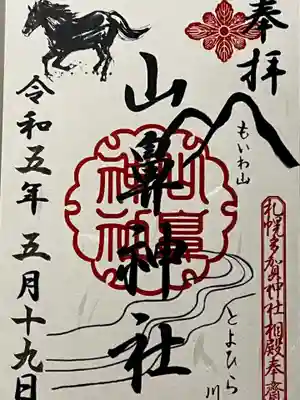 奉拝
もいわ山
札幌多賀神社相殿奉斎
山鼻神社
とよひら川
令和五年五月十九日